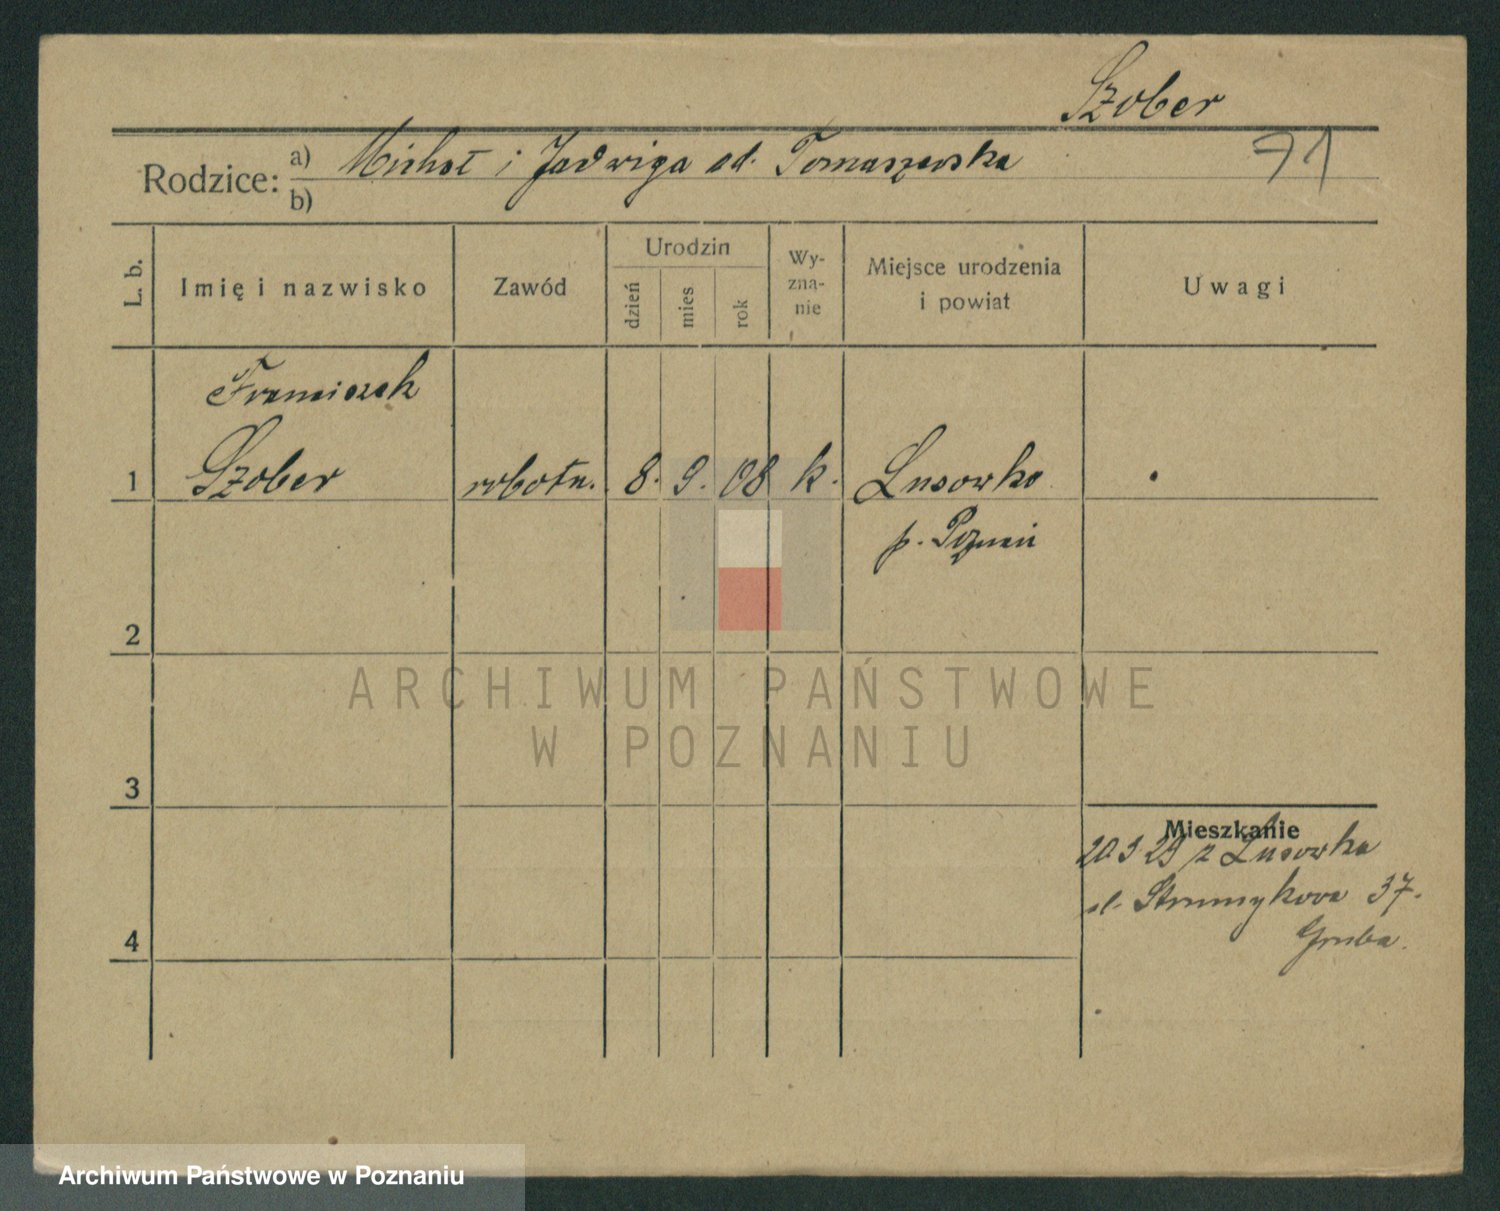 Szober
71
Rodzice: a) Michał i Jadwiga od. Tomaszewska
b)
L. b. Imię i nazwisko Zawód Urodzin dzień mies rok Wy-zna-nie Miejsce urodzenia i powiat Uwagi
Franciszek
1 Szober robotn. 8. 9. 08 k. Lusowko
p. Poznań
2
3
Mieszkanie
20 3 29 z Lusowka
37.
4
ARCHIWUM PAŃSTWOWE
W POZNANIU
Archiwum Państwowe w Poznaniu